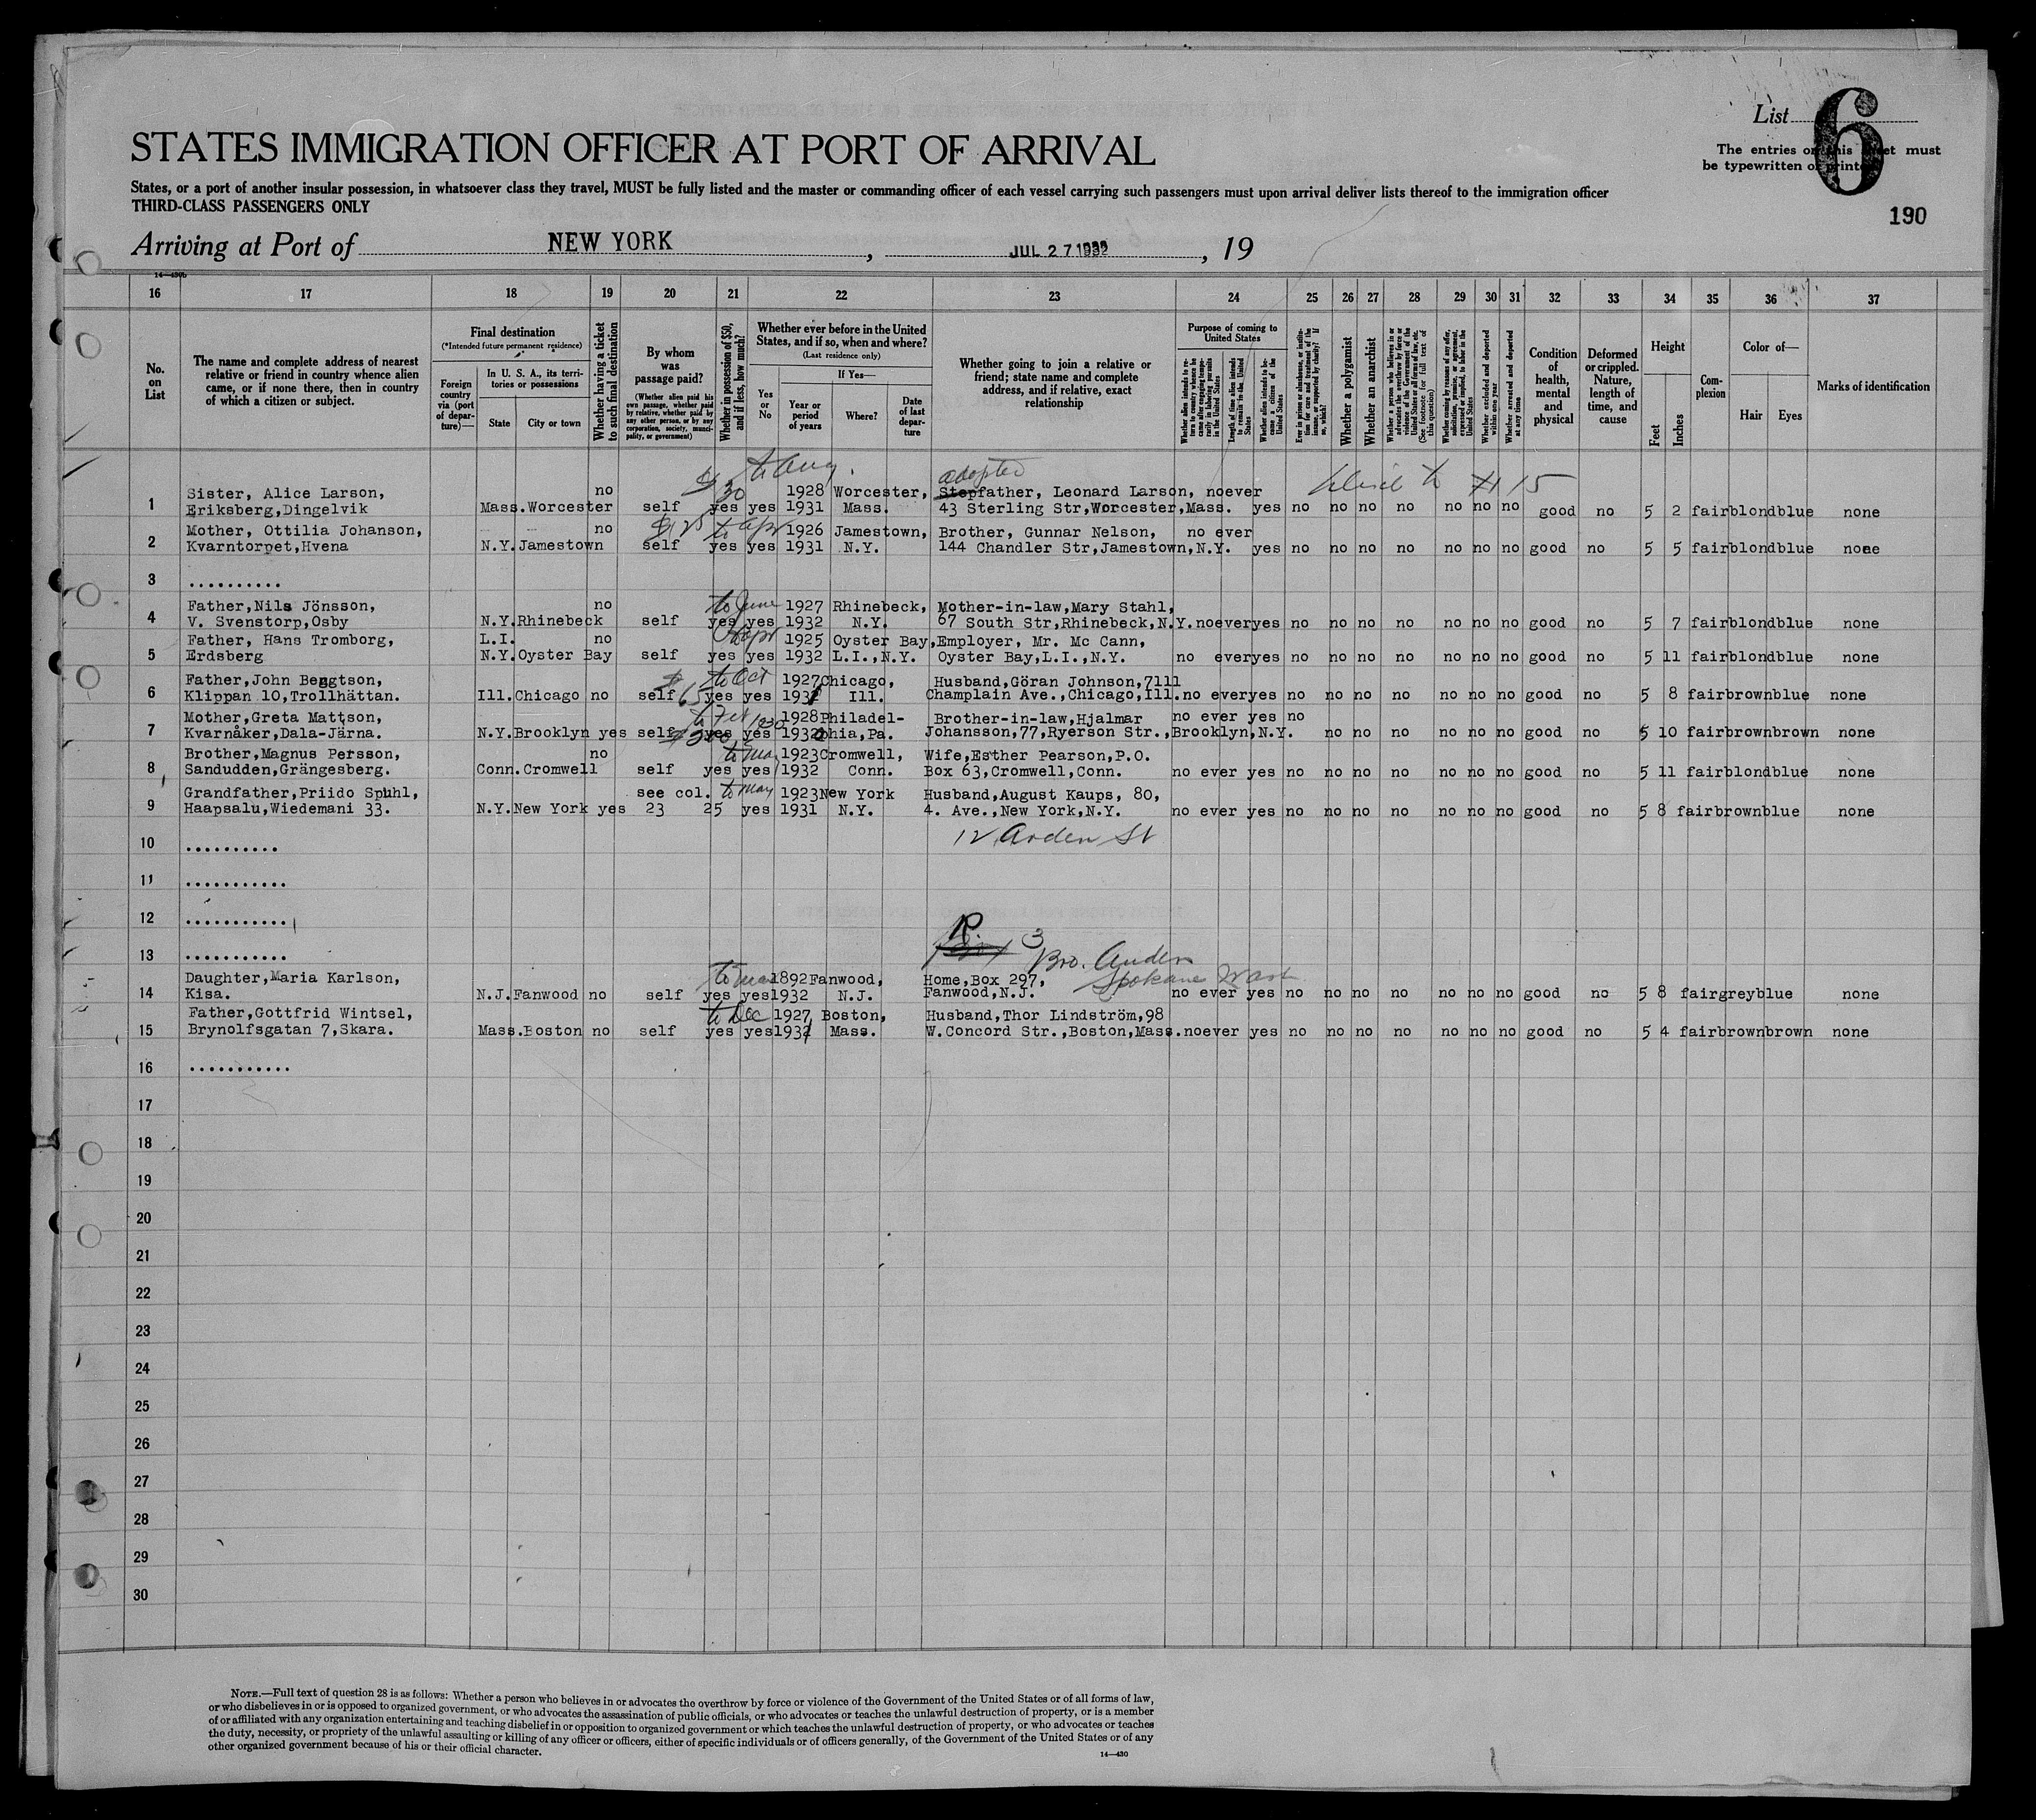 List 6
The entries on this sheet must
be typewritten or printed
190
STATES IMMIGRATION OFFICER AT PORT OF ARRIVAL
States, or a port of another insular possession, in whatsoever class they travel, MUST be fully listed and the master or commanding officer of each vessel carrying such passengers must upon arrival deliver lists thereof to the immigration officer
THIRD-CLASS PASSENGERS ONLY
Arriving at Port of NEW YORK, JUL 27 1932, 19
16 17 18 19 20 21 22 23 24 25 26 27 28 29 30 31 32 33 34 35 36 37
No. on List
The name and complete address of nearest relative or friend in country whence alien came, or if none there, then in country of which a citizen or subject.
Final destination
(*Intended future permanent residence)
Foreign country via (port of departure)—
In U. S. A., its territories or possessions
State
City or town
Whether having a ticket to such final destination
By whom was passage paid?
(Whether alien paid his own passage, whether paid by relative, whether paid by any other person, or by any corporation, society, municipality, or government)
Whether in possession of $50, and if less, how much?
Whether ever before in the United States, and if so, when and where?
(Last residence only)
Yes or No
If Yes—
Year or period of years
Where?
Date of last departure
Whether going to join a relative or friend; state name and complete address, and if relative, exact relationship
Purpose of coming to United States
Whether alien intends to return to country whence he came after engaging temporarily in laboring pursuits in the United States
Length of time alien intends to remain in the United States
Whether alien intends to become a citizen of the United States
Ever in prison or almshouse, or institution for care and treatment of the insane, or supported by charity? If so, which?
Whether a polygamist
Whether an anarchist
Whether a person who believes in or advocates the overthrow by force or violence of the Government of the United States or all forms of law, etc. (See footnote for full text of this question)
Whether coming by reason of any offer, solicitation, promise, or agreement, expressed or implied, to labor in the United States
Whether excluded and deported within one year
Whether arrested and deported at any time
Condition of health, mental and physical
Deformed or crippled. Nature, length of time, and cause
Height
Feet
Inches
Complexion
Color of—
Hair
Eyes
Marks of identification
$30 to Aug. adopted
Sister, Alice Larson, no 1928 Worcester, Stepfather, Leonard Larson, no ever
1 Eriksberg,Dingelvik Mass. Worcester self yes yes 1931 Mass. 43 Sterling Str,Worcester,Mass. yes no no no no no no no good no 5 2 fair blond blue none
Mother, Ottilia Johanson, no $125 to apr 1926 Jamestown, Brother, Gunnar Nelson, no ever
2 Kvarntorpet,Hvena N.Y. Jamestown self yes yes 1931 N.Y. 144 Chandler Str,Jamestown,N.Y. yes no no no no no no no good no 5 5 fair blond blue none
3 ..........
Father,Nils Jönsson, no to June 1927 Rhinebeck, Mother-in-law,Mary Stahl,
4 V. Svenstorp,Osby N.Y. Rhinebeck self yes yes 1932 N.Y. 67 South Str,Rhinebeck,N.Y. no ever yes no no no no no no no good no 5 7 fair blond blue none
Father, Hans Tromborg, L.I. no to apr 1925 Oyster Bay, Employer, Mr. Mc Cann,
5 Erdsberg N.Y. Oyster Bay self yes yes 1932 L.I.,N.Y. Oyster Bay,L.I.,N.Y. no ever yes no no no no no no no good no 5 11 fair blond blue none
Father,John Bengtson, $65 to Oct 1927 Chicago, Husband,Göran Johnson,7111
6 Klippan 10,Trollhättan. Ill. Chicago no self yes yes 1931 Ill. Champlain Ave.,Chicago,Ill. no ever yes no no no no no no no good no 5 8 fair brown blue none
Mother,Greta Mattson, to Feb 1930 1928 Philadel- Brother-in-law,Hjalmar no ever yes no
7 Kvarnåker,Dala-Järna. N.Y. Brooklyn yes self yes yes 1932 phia,Pa. Johansson,77,Ryerson Str.,Brooklyn,N.Y. no no no no no no good no 5 10 fair brown brown none
Brother,Magnus Persson, no to Mar 1923 Cromwell, Wife,Esther Pearson,P.O.
8 Sandudden,Grängesberg. Conn. Cromwell self yes yes 1932 Conn. Box 63,Cromwell,Conn. no ever yes no no no no no no no good no 5 11 fair blond blue none
Grandfather,Priido Spuhl, see col. to May 1923 New York Husband,August Kaups, 80,
9 Haapsalu,Wiedemani 33. N.Y. New York yes 23 25 yes 1931 N.Y. 4. Ave.,New York,N.Y. no ever yes no no no no no no no good no 5 8 fair brown blue none
10 .......... 12 Arden St
11 ...........
12 ...........
13 ........... R. 3 Bro. Anders
Daughter,Maria Karlson, to Mar 1892 Fanwood, Home,Box 297, Spokane Wash
14 Kisa. N.J. Fanwood no self yes yes 1932 N.J. Fanwood,N.J. no ever yes no no no no no no no good no 5 8 fair grey blue none
Father,Gottfrid Wintsel, to Dec 1927 Boston, Husband,Thor Lindström,98
15 Brynolfsgatan 7,Skara. Mass. Boston no self yes yes 1931 Mass. W.Concord Str.,Boston,Mass. no ever yes no no no no no no no good no 5 4 fair brown brown none
16 ...........
17
18
19
20
21
22
23
24
25
26
27
28
29
30
NOTE.—Full text of question 28 is as follows: Whether a person who believes in or advocates the overthrow by force or violence of the Government of the United States or of all forms of law,
or who disbelieves in or is opposed to organized government, or who advocates the assassination of public officials, or who advocates or teaches the unlawful destruction of property, or is a member
of or affiliated with any organization entertaining and teaching disbelief in or opposition to organized government or which teaches the unlawful destruction of property, or who advocates or teaches
the duty, necessity, or propriety of the unlawful assaulting or killing of any officer or officers, either of specific individuals or of officers generally, of the Government of the United States or of any
other organized government because of his or their official character.
14—430